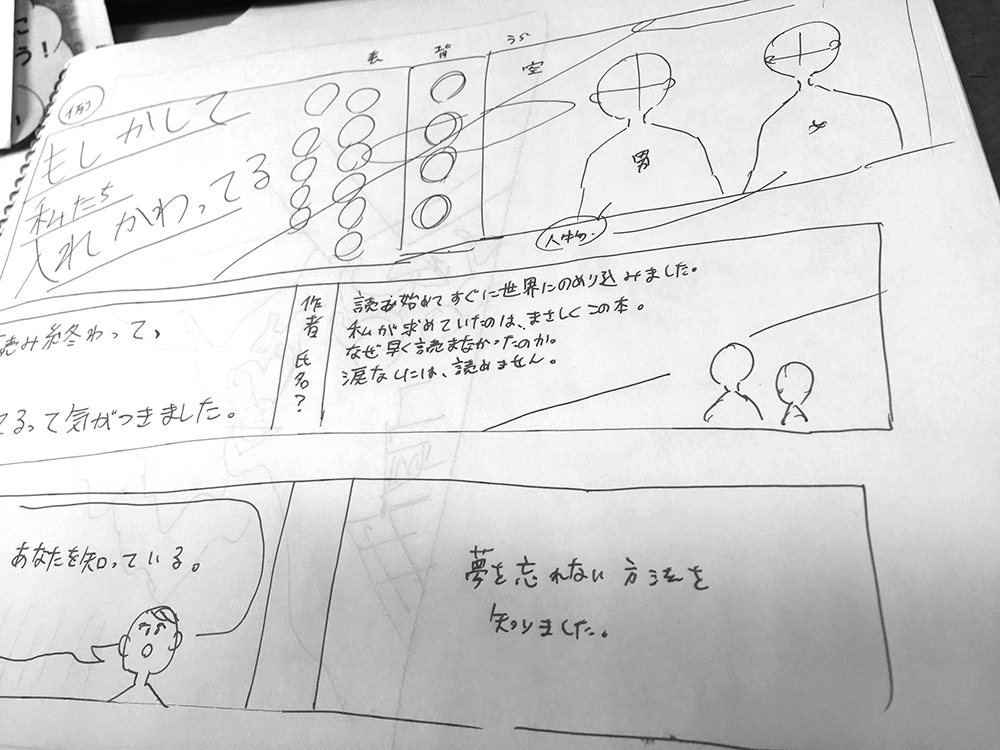 こう！
例
表
背
うら
空
もしかして
私たち
入れかわってる
男
女
人物
読み終わって、
てるって気がつきました。
作者氏名？
読み始めてすぐに世界にのめり込みました。
私が求めていたのは、まさしくこの本。
なぜ早く読まなかったのか。
涙なしには、読めません。
あなたを知っている。
夢を忘れない方法を
知りました。